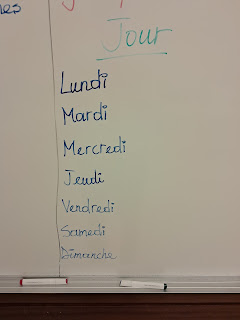 Jour
Lundi
Mardi
Mercredi
Jeudi
Vendredi
Samedi
Dimanche